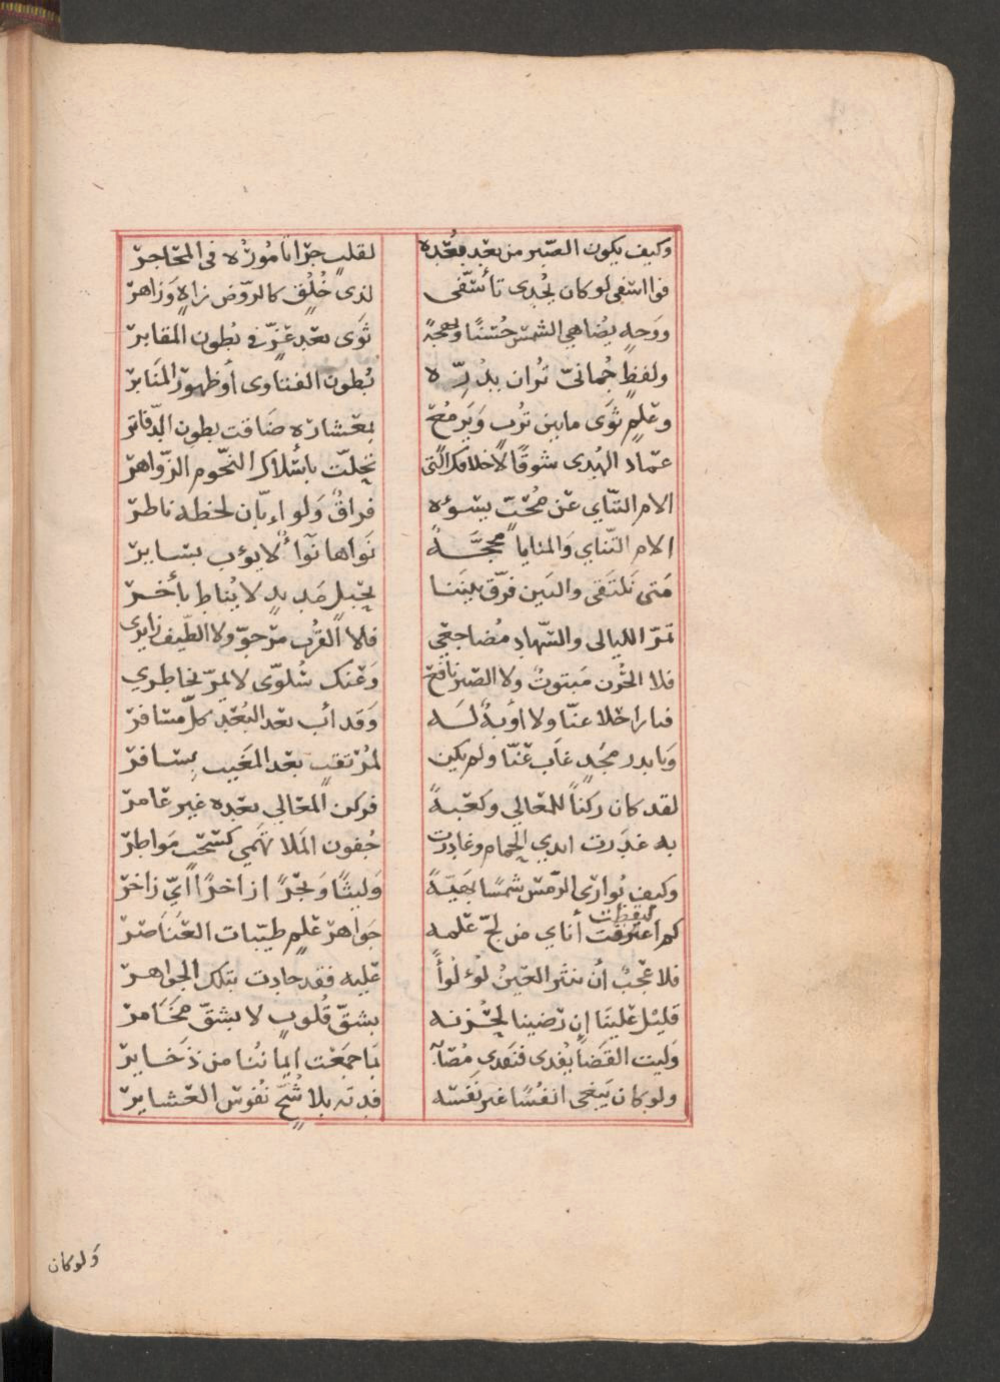 وكيف يكون الصّبر من بعد بُعده لقلبٍ جرَا نامُورُه في المحَاجرِ
فوا اسَفى لو كان يُجدى تأسّفى لذى خُلُقٍ كالرّوض زاهٍ وَزاهرِ
ووَجهٍ يُضاهي الشمسَ حُسنًا وبهجةً ثوَى بعد عزٍّ في بُطون المقابرِ
ولفظٍ جُمانىّ تُزان بدُرِّه بُطون الفتاوى أوظهورُ المنَابرِ
وعلمٍ ثوَى مابين تُربٍ وَبَرمُحٍ بمعشاره ضَاقت بطون الدّفاترِ
عمَاد الهُدى شوقًا لاخلاقك الّتى تحلّت باسْلاك النجوم الزّواهرِ
الامَ التنّاي عن مُحبّ يسؤه فراقٌ وَلو ابّان لحظة ناظرِ
الامَ التّنَاي وَالمنايا محجّةً نَواها نَوًا لا يؤب بسَايرِ
مَتى نَلتقى والبَين فرّق بيننا بحبلٍ مَديدٍ لا يُناط بأخرِ
تمرّ الليالى والسّهاد مُضاجعي فلا القُرب مرجوّ ولا الطّيف زايرى
فلا الحُزن مَبتوتٌ ولا الصّبر نافعٌ وَعَنك سُلوّى لا يمرّ بخاطري
فيارا حلا عنّا ولا أوبةٌ لَه وَقد أب بعد البُعد كلّ مسَافرِ
وَيا بدر مجدٍ غاب عنّا ولم يكن لمُرتقبٍ بعد المَغيب بسَافرِ
لقد كان ركنًا للمعَالي وكعبةً فركن المعَالي بعده غير عَامرِ
به غدَرت ايدي الحمام وغادرت جُفون المَلا تهمي كسُحْبٍ مَواطرِ
وكيف يُوارى الرّمسُ شمسًا بهيّةً وَليثًا وَبحرًا زاخرًا ايّ زاخرِ
كم اغترفت أناي من لجّ علمه جَواهر علمٍ طيّبات العنَاصرِ
فلا عَجبٌ اَن ينثر العَينُ لؤلؤاً عليه فقد جادت بتلك الجواهرِ
قليل علينَا إن رَضينا لحُزنه بشقّ قُلوبٍ لا بشقّ مخَامرِ
وَليت القضَا يُفدى فنَفدى مُصَابَه بمَا جمعَت ايمَاننا من ذخَايرِ
ولو كان يَبغى انفُسًا غير نَفسه فدته بلا شُحٍّ نُفوس العشَايرِ
وَلوكان